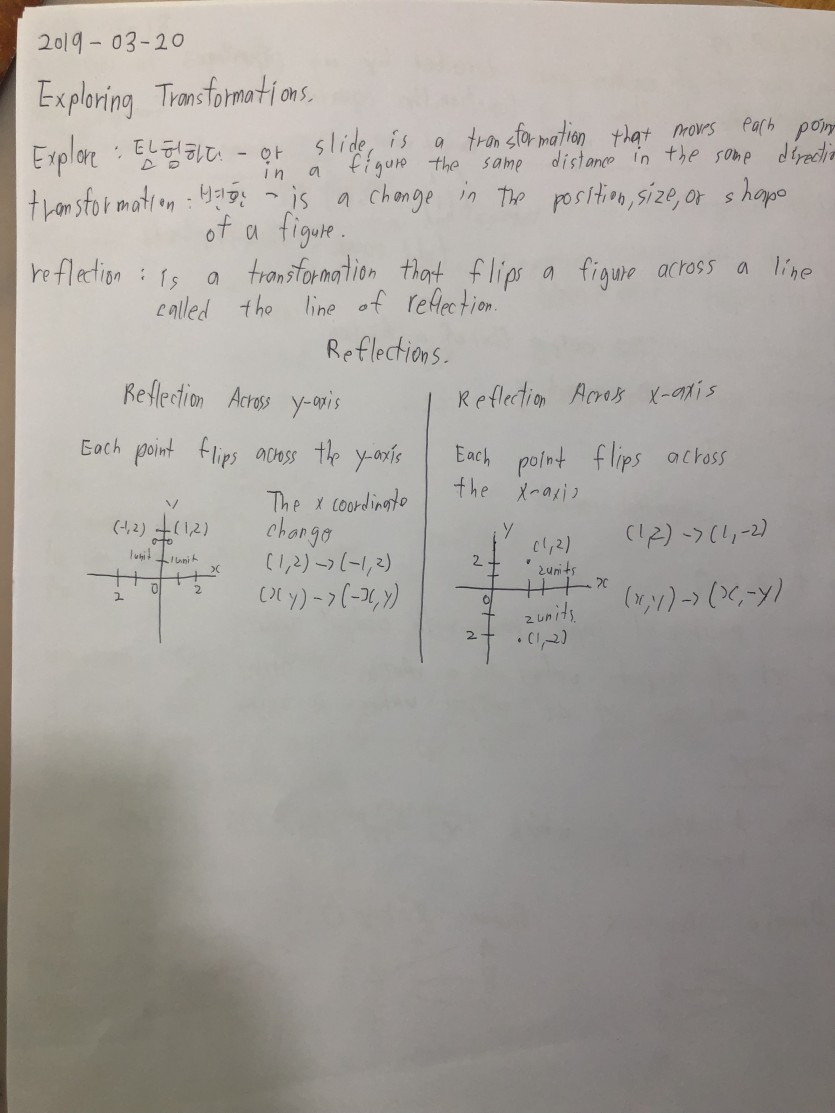 2019-03-20
Exploring Transformations.
Explore : 탐험하다 - or slide, is a transformation that moves each point
in a figure the same distance in the same directio
transformation : 변환 - is a change in the position, size, or shape
of a figure.
reflection : is a transformation that flips a figure across a line
called the line of reflection.
Reflections.
Reflection Across y-axis
Each point flips across the y-axis
The x coordinate
change
(1,2) -> (-1,2)
(x y) -> (-x, y)
y
(-1,2) (1,2)
1unit 1unit
x
2 0 2
Reflection Across x-axis
Each point flips across
the x-axis
(1,2) -> (1,-2)
(x,y) -> (x,-y)
y
(1,2)
2
2units
x
0
2units.
2
(1,-2)